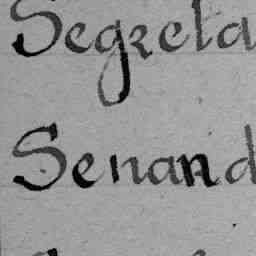 Segreta
Senand